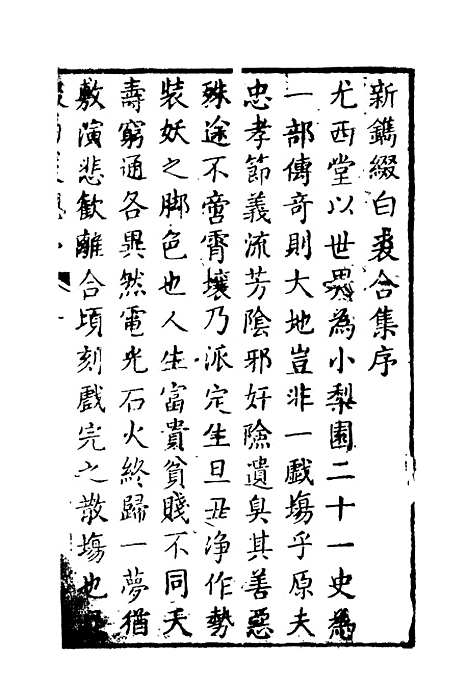 新鐫綴白裘合集序
尤西堂以世界為小梨園二十一史為
一部傳奇則大地豈非一戲場乎原夫
忠孝節義流芳陰邪奸險遺臭其善惡
殊途不啻霄壤乃派定生旦丑净作勢
裝妖之脚色也人生富貴貧賤不同夭
壽窮通各異然電光石火終歸一夢猶
敷演悲歡離合頃刻戲完之散塲也